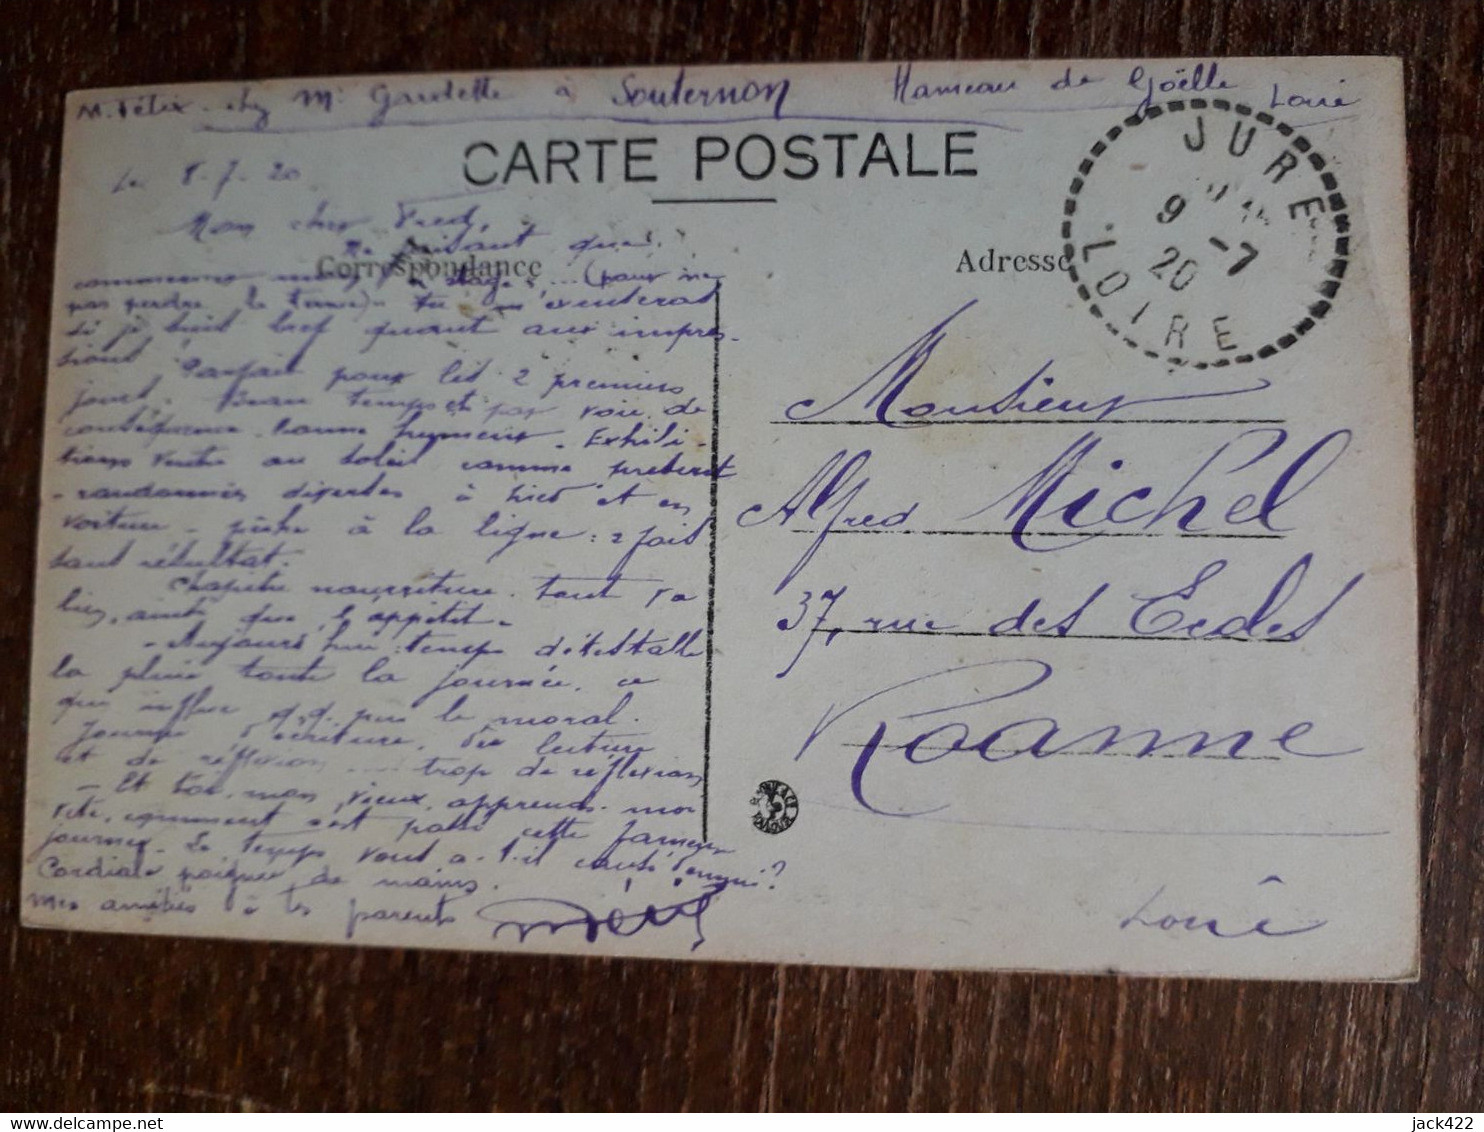 M. Félix chez Mr Gardette à Souternon Hameau de Goëlle Loire
CARTE POSTALE
JURE
9 -7
20
LOIRE
Le 8-7-20
Mon cher Fred,
Ne faisant que
Correspondance
Adresse
commencer mes stage (pour ne
pas perdre le terme) tu m'excuseras
si je suis bref quant aux impres-
sions. Parfait pour les 2 premiers
jours. Beau temps et par voie de
conséquence bonne humeur. Exhibi-
tions ventre au soleil comme prétexte
- randonnées diverses à pied et en
voiture - pêche à la ligne : 2 fois
sans résultat.
Chapitre nourriture. tout va
bien, ainsi que l'appétit -
- Aujourd'hui : temps détestable
la pluie toute la journée. ce
qui influe qq. peu le moral.
Journée d'écriture, de lecture
et de réflexion .... trop de réflexions
- Et toi, mon vieux, apprends-moi
vite, comment s'est passé cette fameuse
journée. Le temps vous a-t-il causé d'ennui?
Cordiale poignée de mains.
mes amitiés à tes parents
Monsieur
Alfred Michel
37, rue des Ecoles
Roanne
Loire
www.delcampe.net
jack422